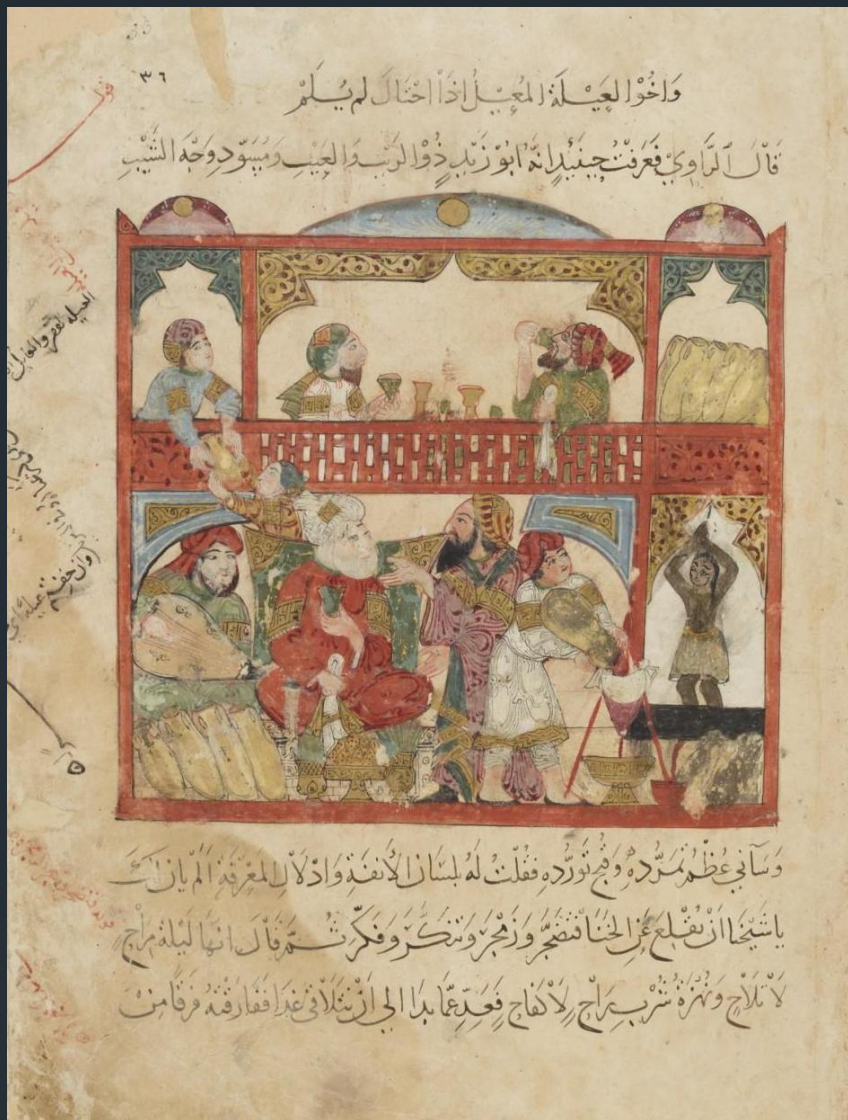 ٣٦
وَاخُوْ العَيْلَةِ المُعِيْلُ اذَا احْتَالَ لم يُلَمْ
قَالَ الرَّاوِيْ فَعَرَفْتُ حِينَئِذٍ انَّهُ ابُوْ زَيْدٍ ذُوْ الرَيْبِ وَالعَيْبِ وَمُسَوِّدِ وَجْهِ الشَّيْبِ
وَسَآنِي عُظْمُ تَمَرُّدِهِ وَقُبْحُ تَوَرُّدِهِ فقُلْتُ لَهُ بلِسَانِ الأَنَفَةِ وَادْلاَلِ المَعْرِفَةِ الَمْ يَانِ لَكَ
يا شَيْخَنا انْ تُقْلِعَ عَنِ الخَنَا فتَضَجَّرَ وَزَمْجَرَ وَتَنَكَّرَ وَفَكَّرَ ثُمَّ قَالَ انَّهَا لَيْلَةُ مِرَاحٍ
لاَ تَلاَحٍ وَنُهْزَةُ شُرْبِ رَاحٍ لاَ كِفَاحٍ فَعَدِّ عَمَّا بَدَا الي انْ نَتَلاَقي غَدَا فَفَارَقْتُهُ فَرَقًا مِنْ